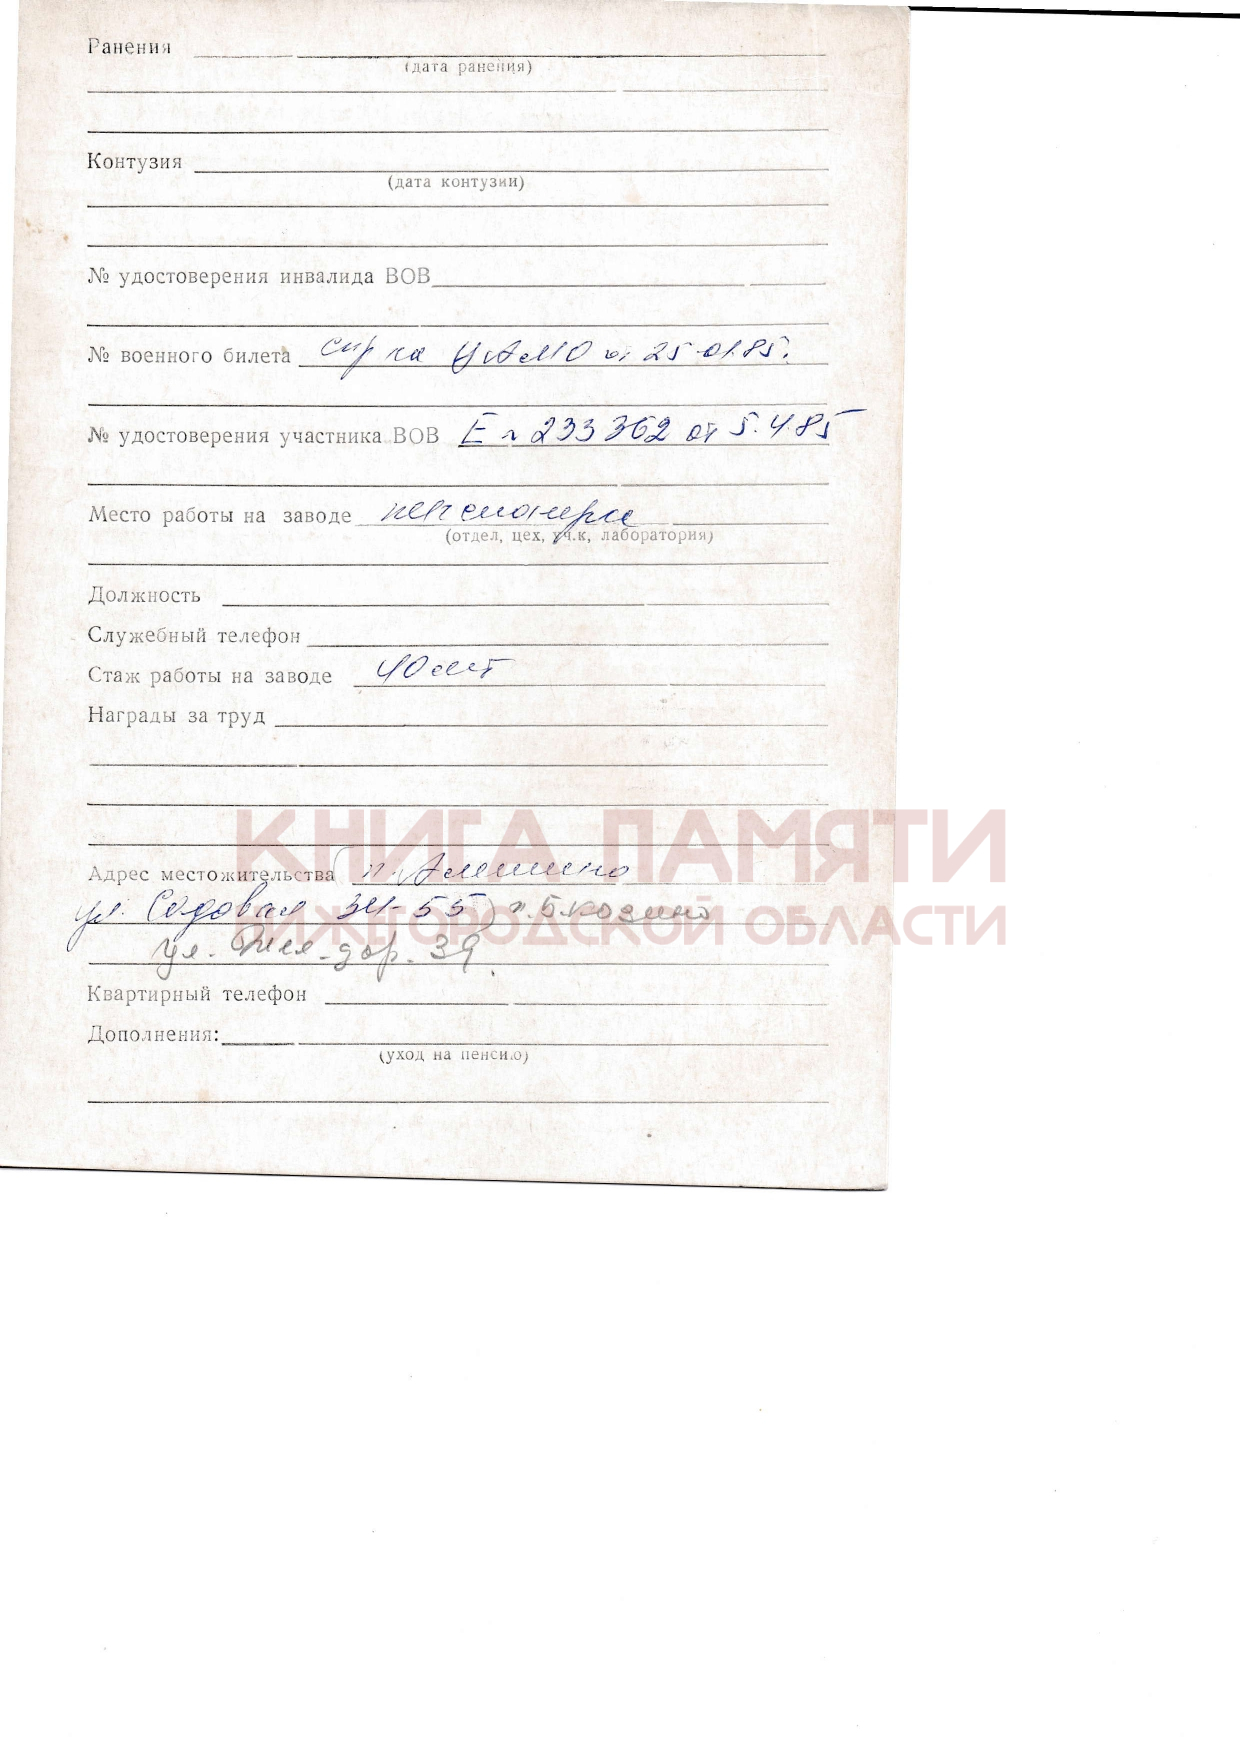 Ранения
(дата ранения)
Контузия
(дата контузии)
№ удостоверения инвалида ВОВ
№ военного билета спр ка ЦАМО от 25.01.85.
№ удостоверения участника ВОВ Е № 233362 от 5.4.85
Место работы на заводе пенсионерка
(отдел, цех, уч.к, лаборатория)
Должность
Служебный телефон
Стаж работы на заводе 40 лет
Награды за труд
КНИГА ПАМЯТИ
Адрес местожительства (п. Алешино
ул. Садовая 55) п. Б козино
НИЖЕГОРОДСКОЙ ОБЛАСТИ
ул. Жел-дор. 39.
Квартирный телефон
Дополнения:
(уход на пенсию)